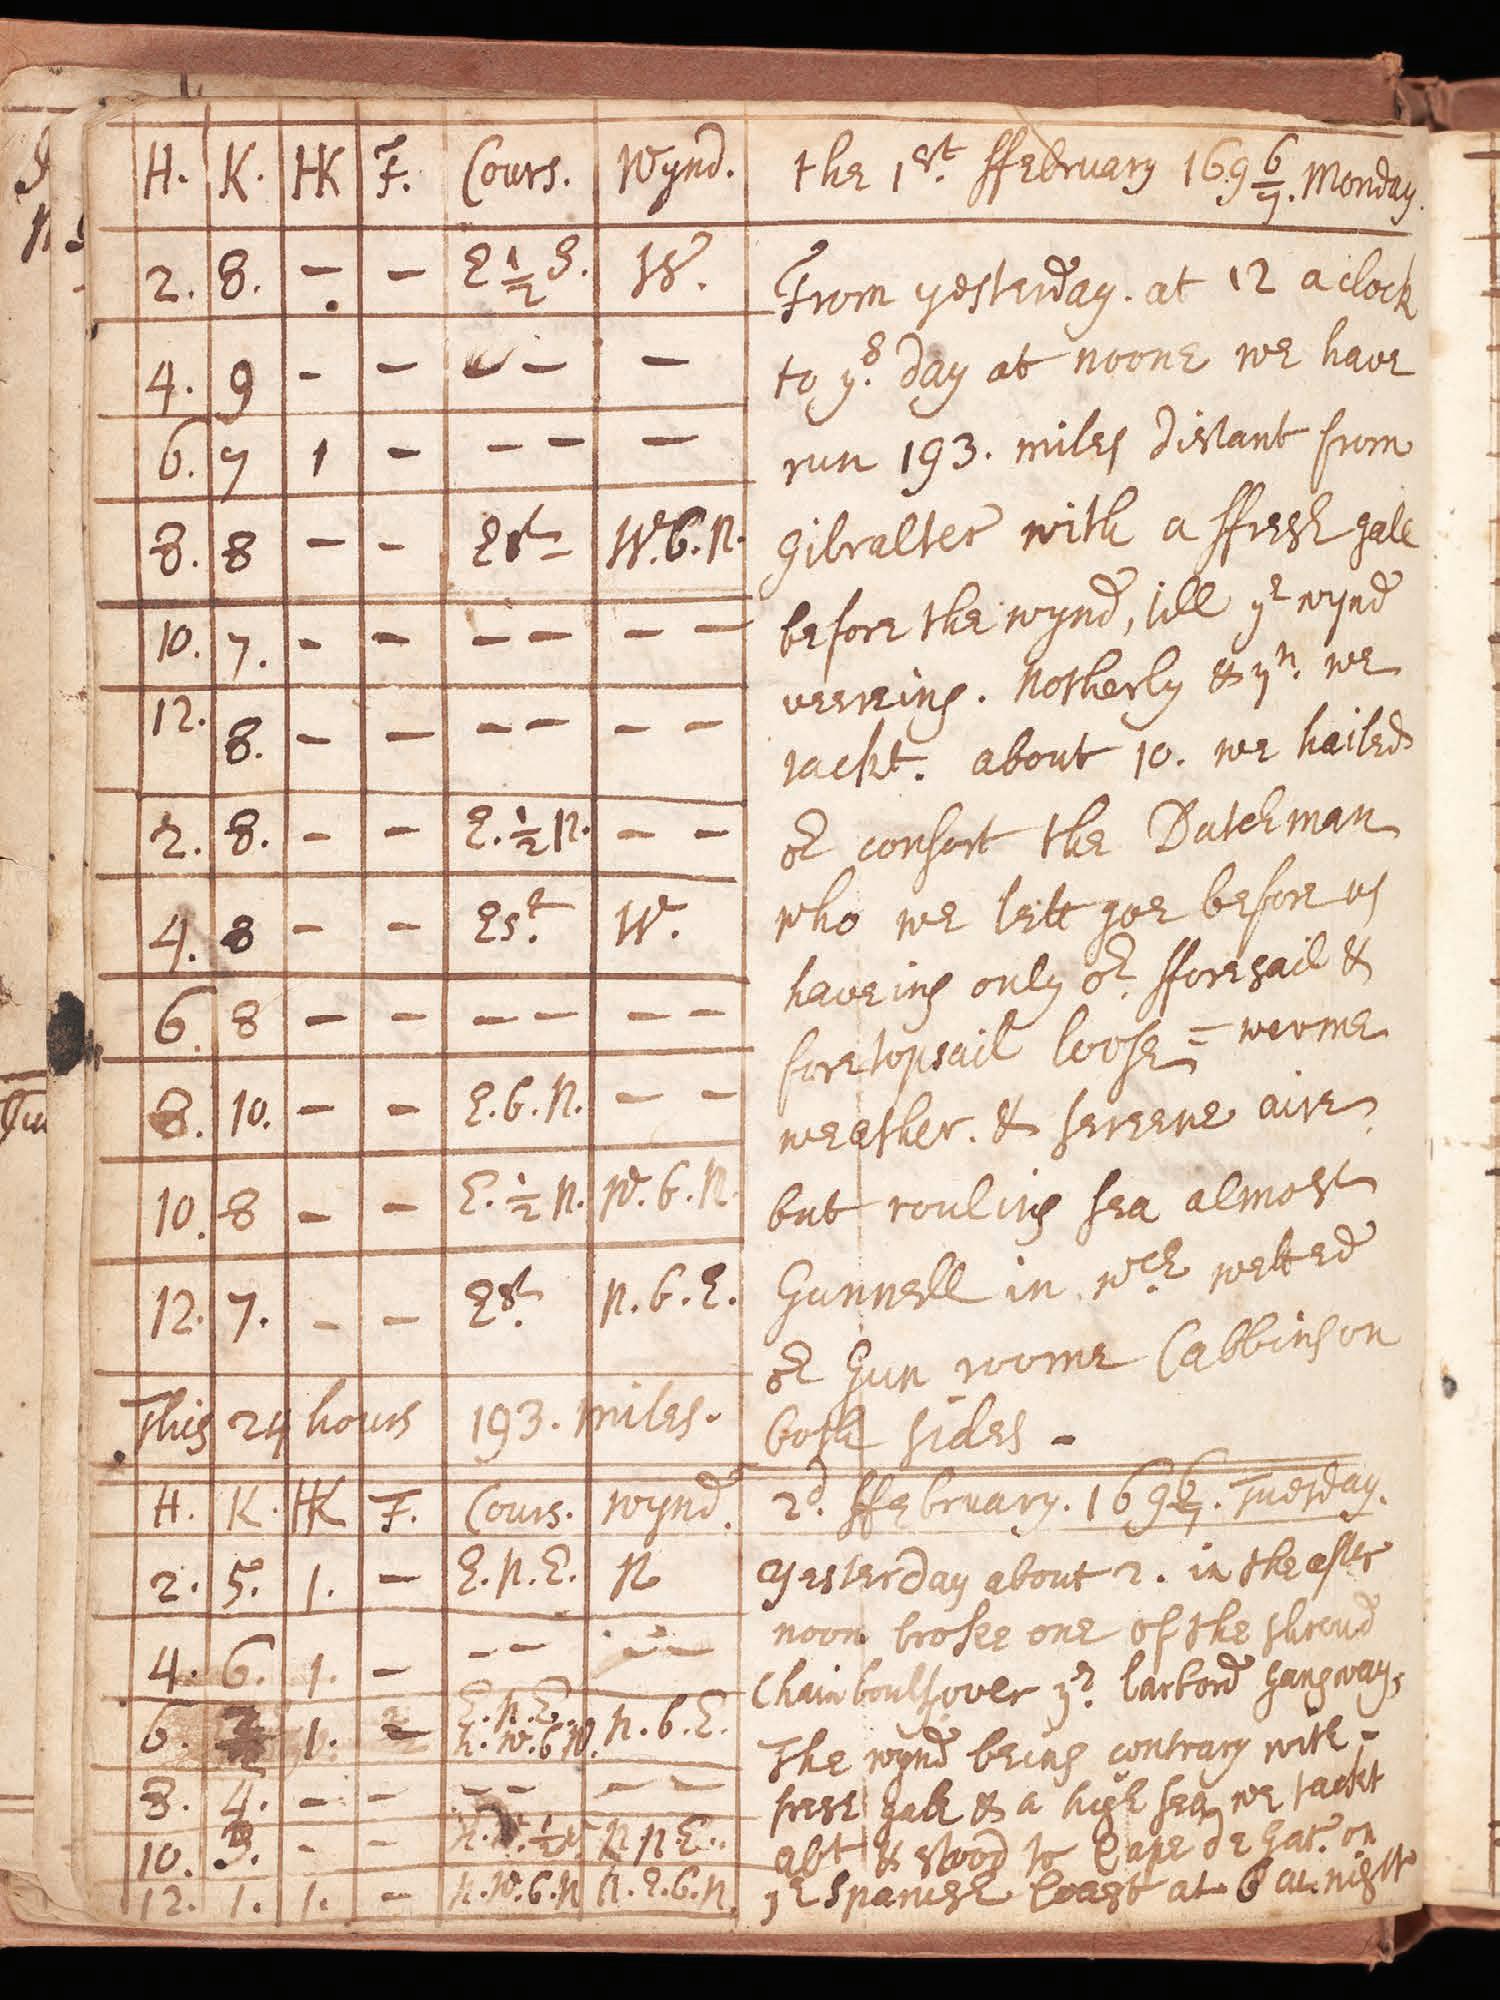 H. K. HK F. Cours. Wynd.
2. 8. - - E ½ S. W.
4. 9 - - - - -
6. 7 1 - - - -
8. 8 - - Est W. b. N.
10. 7. - - - - - -
12. 8. - - - - - -
2. 8. - - E. ½ N. - -
4. 8 - - Est. W.
6. 8 - - - - - -
8. 10. - - E. b. N. - -
10. 8 - - E. ½ N. W. b. N.
12. 7. - - Est. N. b. E.
This 24 hours 193. miles.
the 1st. ffebruary 169 6/7. Monday.
From yesterday. at 12 a clock
to ys. day at noone we have
run 193. miles distant from
Gibralter with a ffresh gale
before the wynd, till ye wynd
veereing. Notherly & yn. we
tackt. about 10. we hailed
or consort the Dutchman
who we lett goe before us
haveing only or. fforesail &
foretopsail loose = warme
weather. & sereene aire
but rouling sea almost
Gunnell in wch wetted
or Gun roome Cabbins on
both sides -
H. K. HK F. Cours. Wynd.
2. 5. 1. - E. N. E. N
4. 6. 1. - - - - -
6. 1. - E. N. E. N. b. E.
N. W. b W.
8. 4. - - - - - -
10. 3. - - N N E.
12. 1. 1. - N. W. b. N N. E. b. N.
2d. ffebruary. 169 6/7. Tuesday.
Yesterday about 2. in the after
noon broke one of the shroud
Chain boults over ye. larbord gangway,
The wynd being contrary with -
fresh gale & a high sea, we tackt
abt & stood to Cape de Gat. on
ye Spanish Coast at 6 at night